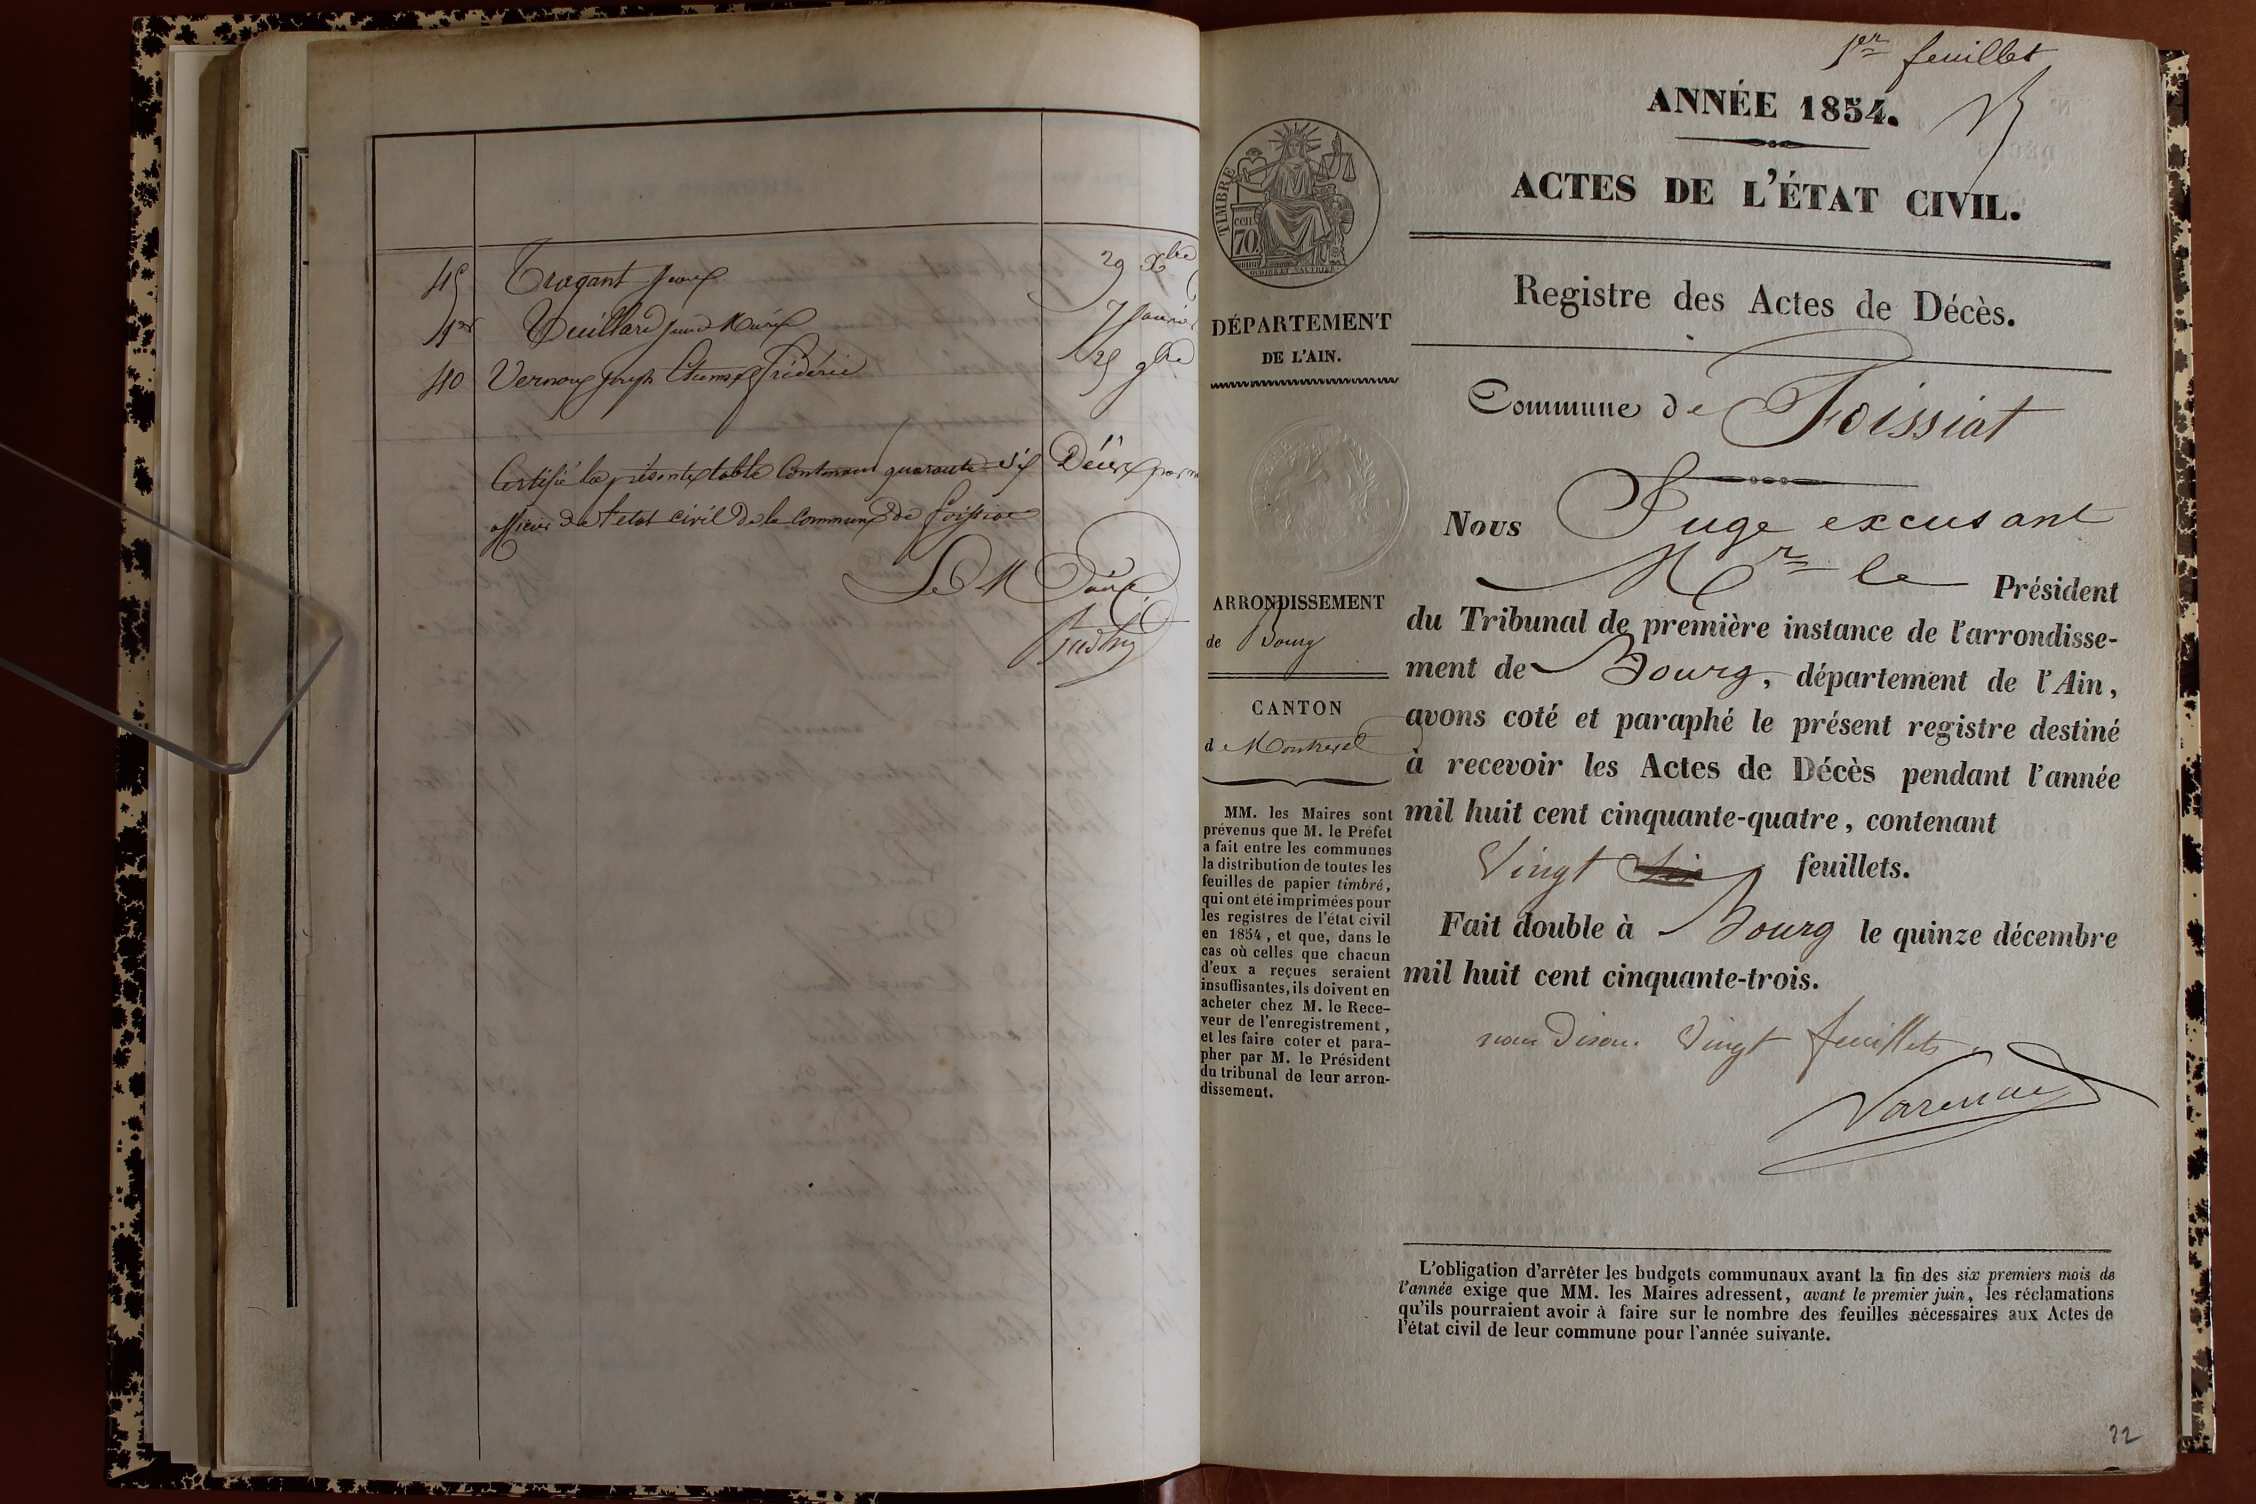 45 Tragant Jeanne 29 Xbre
1er Veuillard Jeanne Marie 7 Janvier
40 Vernoux Joseph Etienne Frédéric 25 9bre
Certifié la présente table Contenant quarante six Décès par
officier de l'état civil de la Commune de Foissiat
Le Maire
1er feuillet
ANNÉE 1854.
ACTES DE L'ÉTAT CIVIL.
Registre des Actes de Décès.
TIMBRE
cen.
70
DÉPARTEMENT
DE L'AIN.
Commune de Foissiat
Nous Juge excusant
Mr le Président
du Tribunal de première instance de l'arrondisse-
ment de Bourg, département de l'Ain,
avons coté et paraphé le présent registre destiné
à recevoir les Actes de Décès pendant l'année
mil huit cent cinquante-quatre, contenant
Vingt feuillets.
Fait double à Bourg le quinze décembre
mil huit cent cinquante-trois.
nous disons Vingt feuillets.
ARRONDISSEMENT
de Bourg
CANTON
de Montrevel
MM. les Maires sont
prévenus que M. le Préfet
a fait entre les communes
la distribution de toutes les
feuilles de papier timbré,
qui ont été imprimées pour
les registres de l'état civil
en 1854, et que, dans le
cas où celles que chacun
d'eux a reçues seraient
insuffisantes, ils doivent en
acheter chez M. le Rece-
veur de l'enregistrement,
et les faire coter et para-
pher par M. le Président
du tribunal de leur arron-
dissement.
L'obligation d'arrêter les budgets communaux avant la fin des six premiers mois de
l'année exige que MM. les Maires adressent, avant le premier juin, les réclamations
qu'ils pourraient avoir à faire sur le nombre des feuilles nécessaires aux Actes de
l'état civil de leur commune pour l'année suivante.